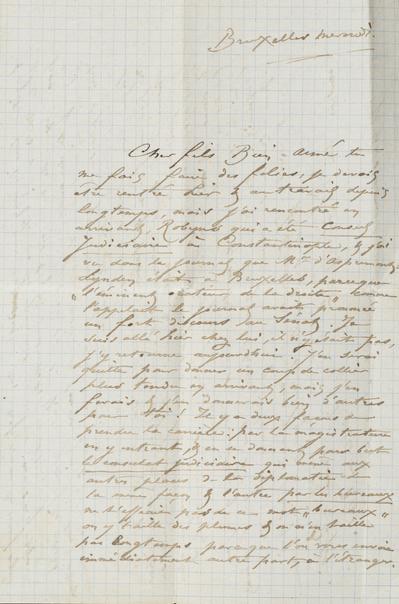 Bruxelles mercredi.
Cher fils Bien-aimé tu
me fais faire des folies, je devais
être rentré hier & au travail depuis
longtemps, mais j'ai rencontré en
arrivant, Robyns qui a été Consul
Judiciaire à Constantinople, & j'ai
vu dans le journal que Mr d'Aspremont-
Lynden était à Bruxelles, parceque
"l'éminent orateur de la droite" comme
l'appelait le journal avait prononcé
un fort discours au Sénat. Je
suis allé hier chez lui, il n'y était pas,
j'y retourne aujourd'hui! J'en serai
quitte pour donner un coup de collier
plus tendu en arrivant, mais j'en
ferais & j'en donnerais bien d'autres
pour toi! Il y a deux façons de
prendre la carrière: par la magistrature
en y entrant, & en se donnant pour but
le consulat judiciaire qui mène aux
autres places de la diplomatie
la même façon & l'autre par les bureaux
ne t'effraie pas de ce mot "bureaux"
on y taille des plumes & on n'en taille
pas longtemps parceque l'on vous envoie
immédiatement autre part, à l'étranger.